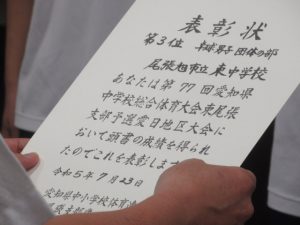 表彰状
第3位 卓球男子団体の部
尾張旭市立東中学校
あなたは第77回愛知県
中学校総合体育大会東尾張
支部予選愛日地区大会に
おいて頭書の成績を得られ
たのでこれを表彰します
令和5年7月23日
愛知県中小学校体育
尾張支部